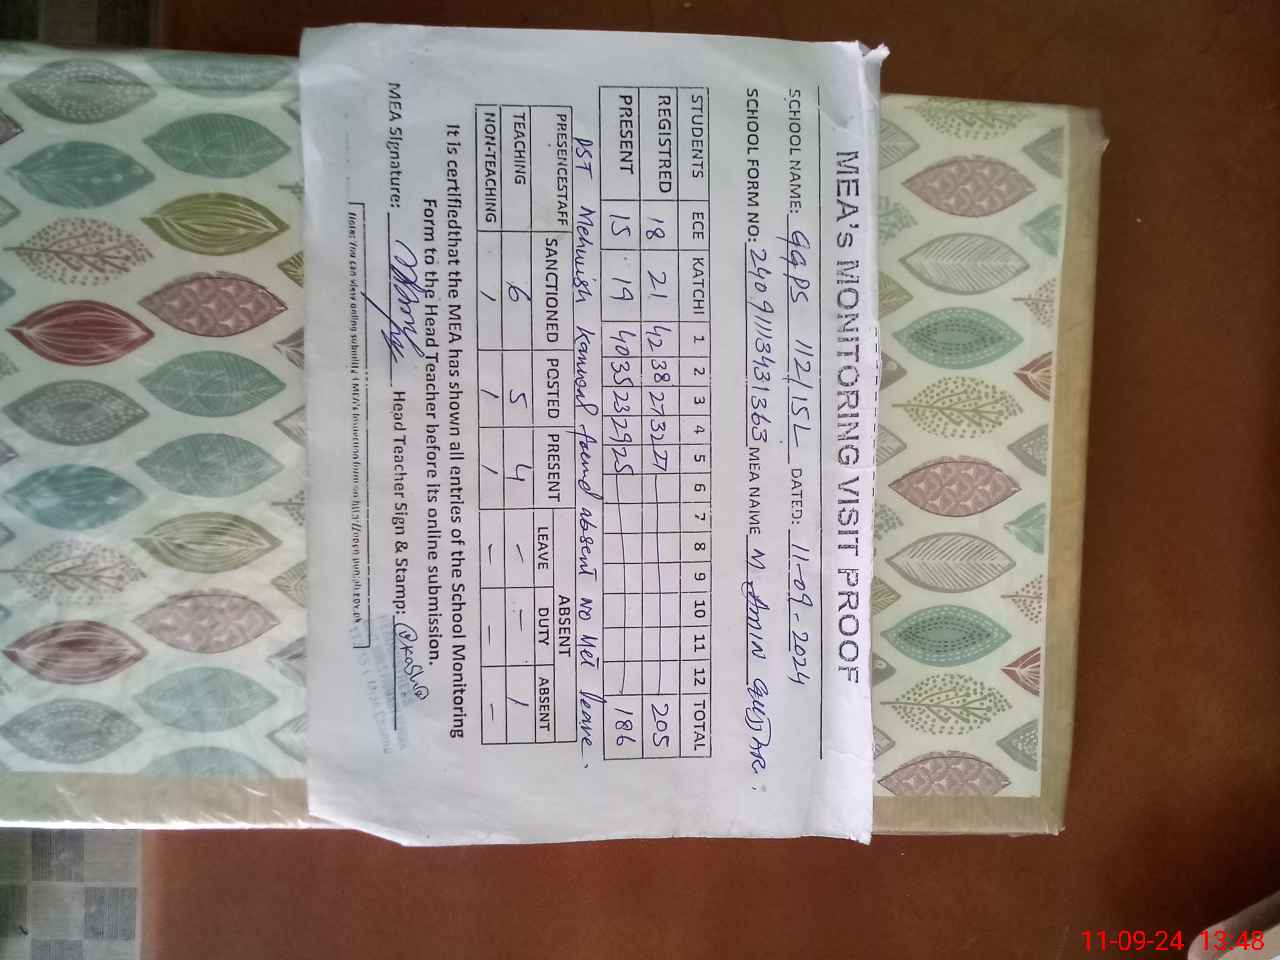 MEA's MONITORING VISIT PROOF
SCHOOL NAME: GGPS 112/15L DATED: 11-09-2024
SCHOOL FORM NO: 2409111343 1363 MEA NAME M. AMIN GUJJAR.
STUDENTS ECE KATCHI 1 2 3 4 5 6 7 8 9 10 11 12 TOTAL
REGISTRED 18 21 42 38 27 32 27 205
PRESENT 15 19 40 35 23 29 25 186
PST Mehwish Kanwal found absent no Met leave.
PRESENCESTAFF SANCTIONED POSTED PRESENT ABSENT
LEAVE DUTY ABSENT
TEACHING 6 5 4 - - 1
NON-TEACHING 1 1 1 - - -
It is certifiedthat the MEA has shown all entries of the School Monitoring
Form to the Head Teacher before its online submission.
MEA Signature: Head Teacher Sign & Stamp:
Note: You can view online submitted MEA's Inspection form on http://open.punjab.gov.pk
11-09-24 13:48